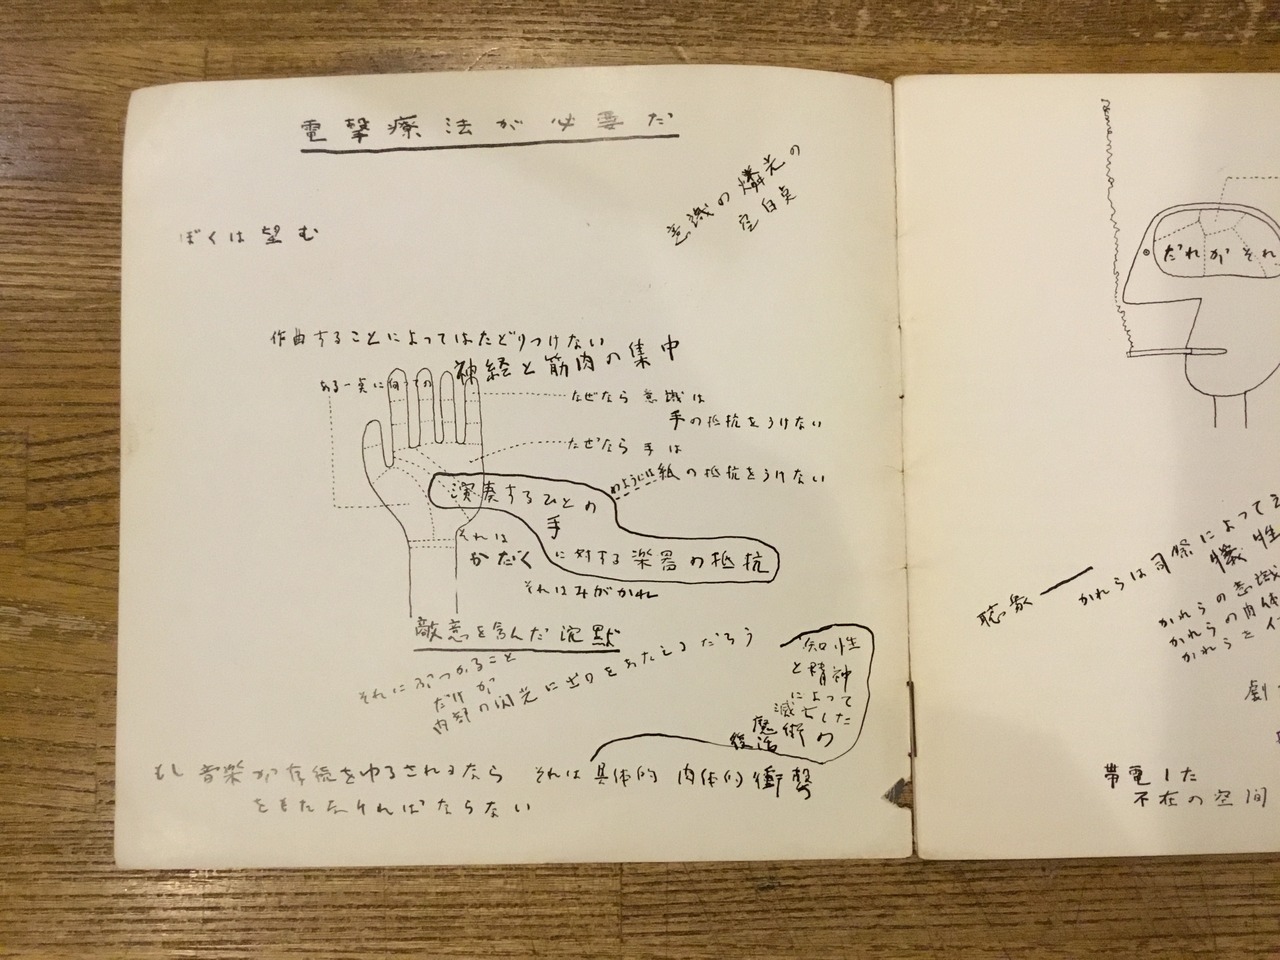 電撃療法が必要だ
意識の燐光の
空白点
ぼくは望む
作曲することによってはたどりつけない
神経と筋肉の集中
ある一点に向っての
なぜなら 意識は
手の抵抗をうけない
なぜなら 手は
のようには紙の抵抗をうけない
演奏するひとの
手
それは
かたく
に対する楽器の抵抗
それはみがかれ
敵意を含んだ沈黙
それにぶつかること
だけが
内部の閃光に出口をあたえるだろう
知性
と精神
によって
滅亡した
魔術の
復活
もし音楽が存続をゆるされるなら それは具体的 肉体的衝撃
をもたなければならない
だれがそれ
聴衆
かれらは司祭によってえ
犠牲
かれらの意識
かれらの肉体
かれらを
劇
帯電した
不在の空間